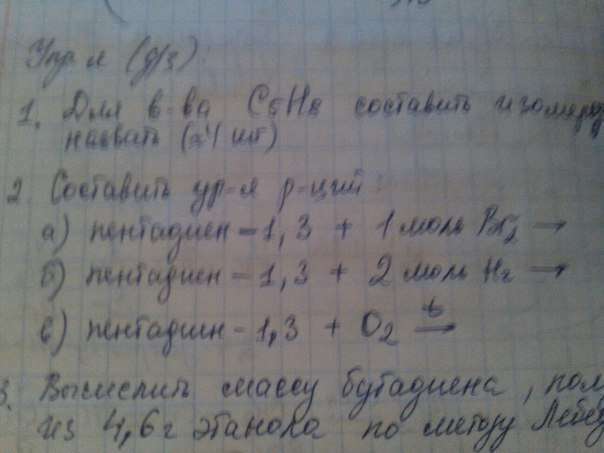 Упр-я (д/з):
1. Для в-ва C5H8 составить изомеры,
назвать (4 шт)
2. Составить ур-я р-ций:
а) пентадиен-1,3 + 1 моль Br2 →
б) пентадиен-1,3 + 2 моль H2 →
в) пентадиен-1,3 + O2 t→
3. Вычислить массу бутадиена, пол
из 4,6г этанола по методу Лебед